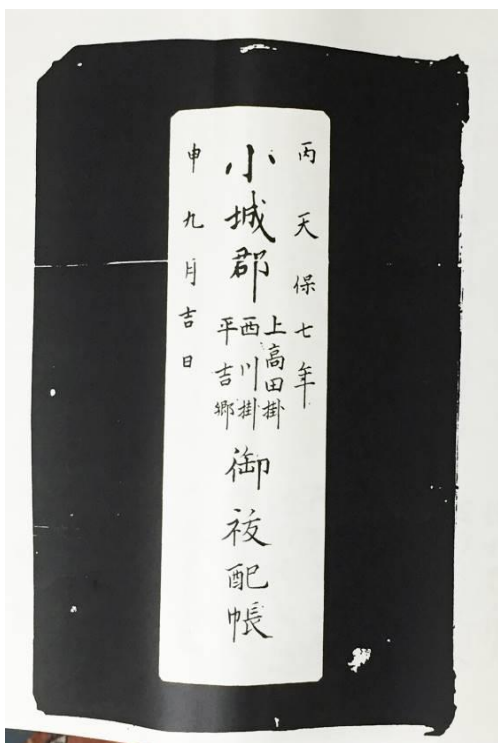 丙天保七年
小城郡
上高田掛
西川掛
平吉郷
御祓配帳
申九月吉日